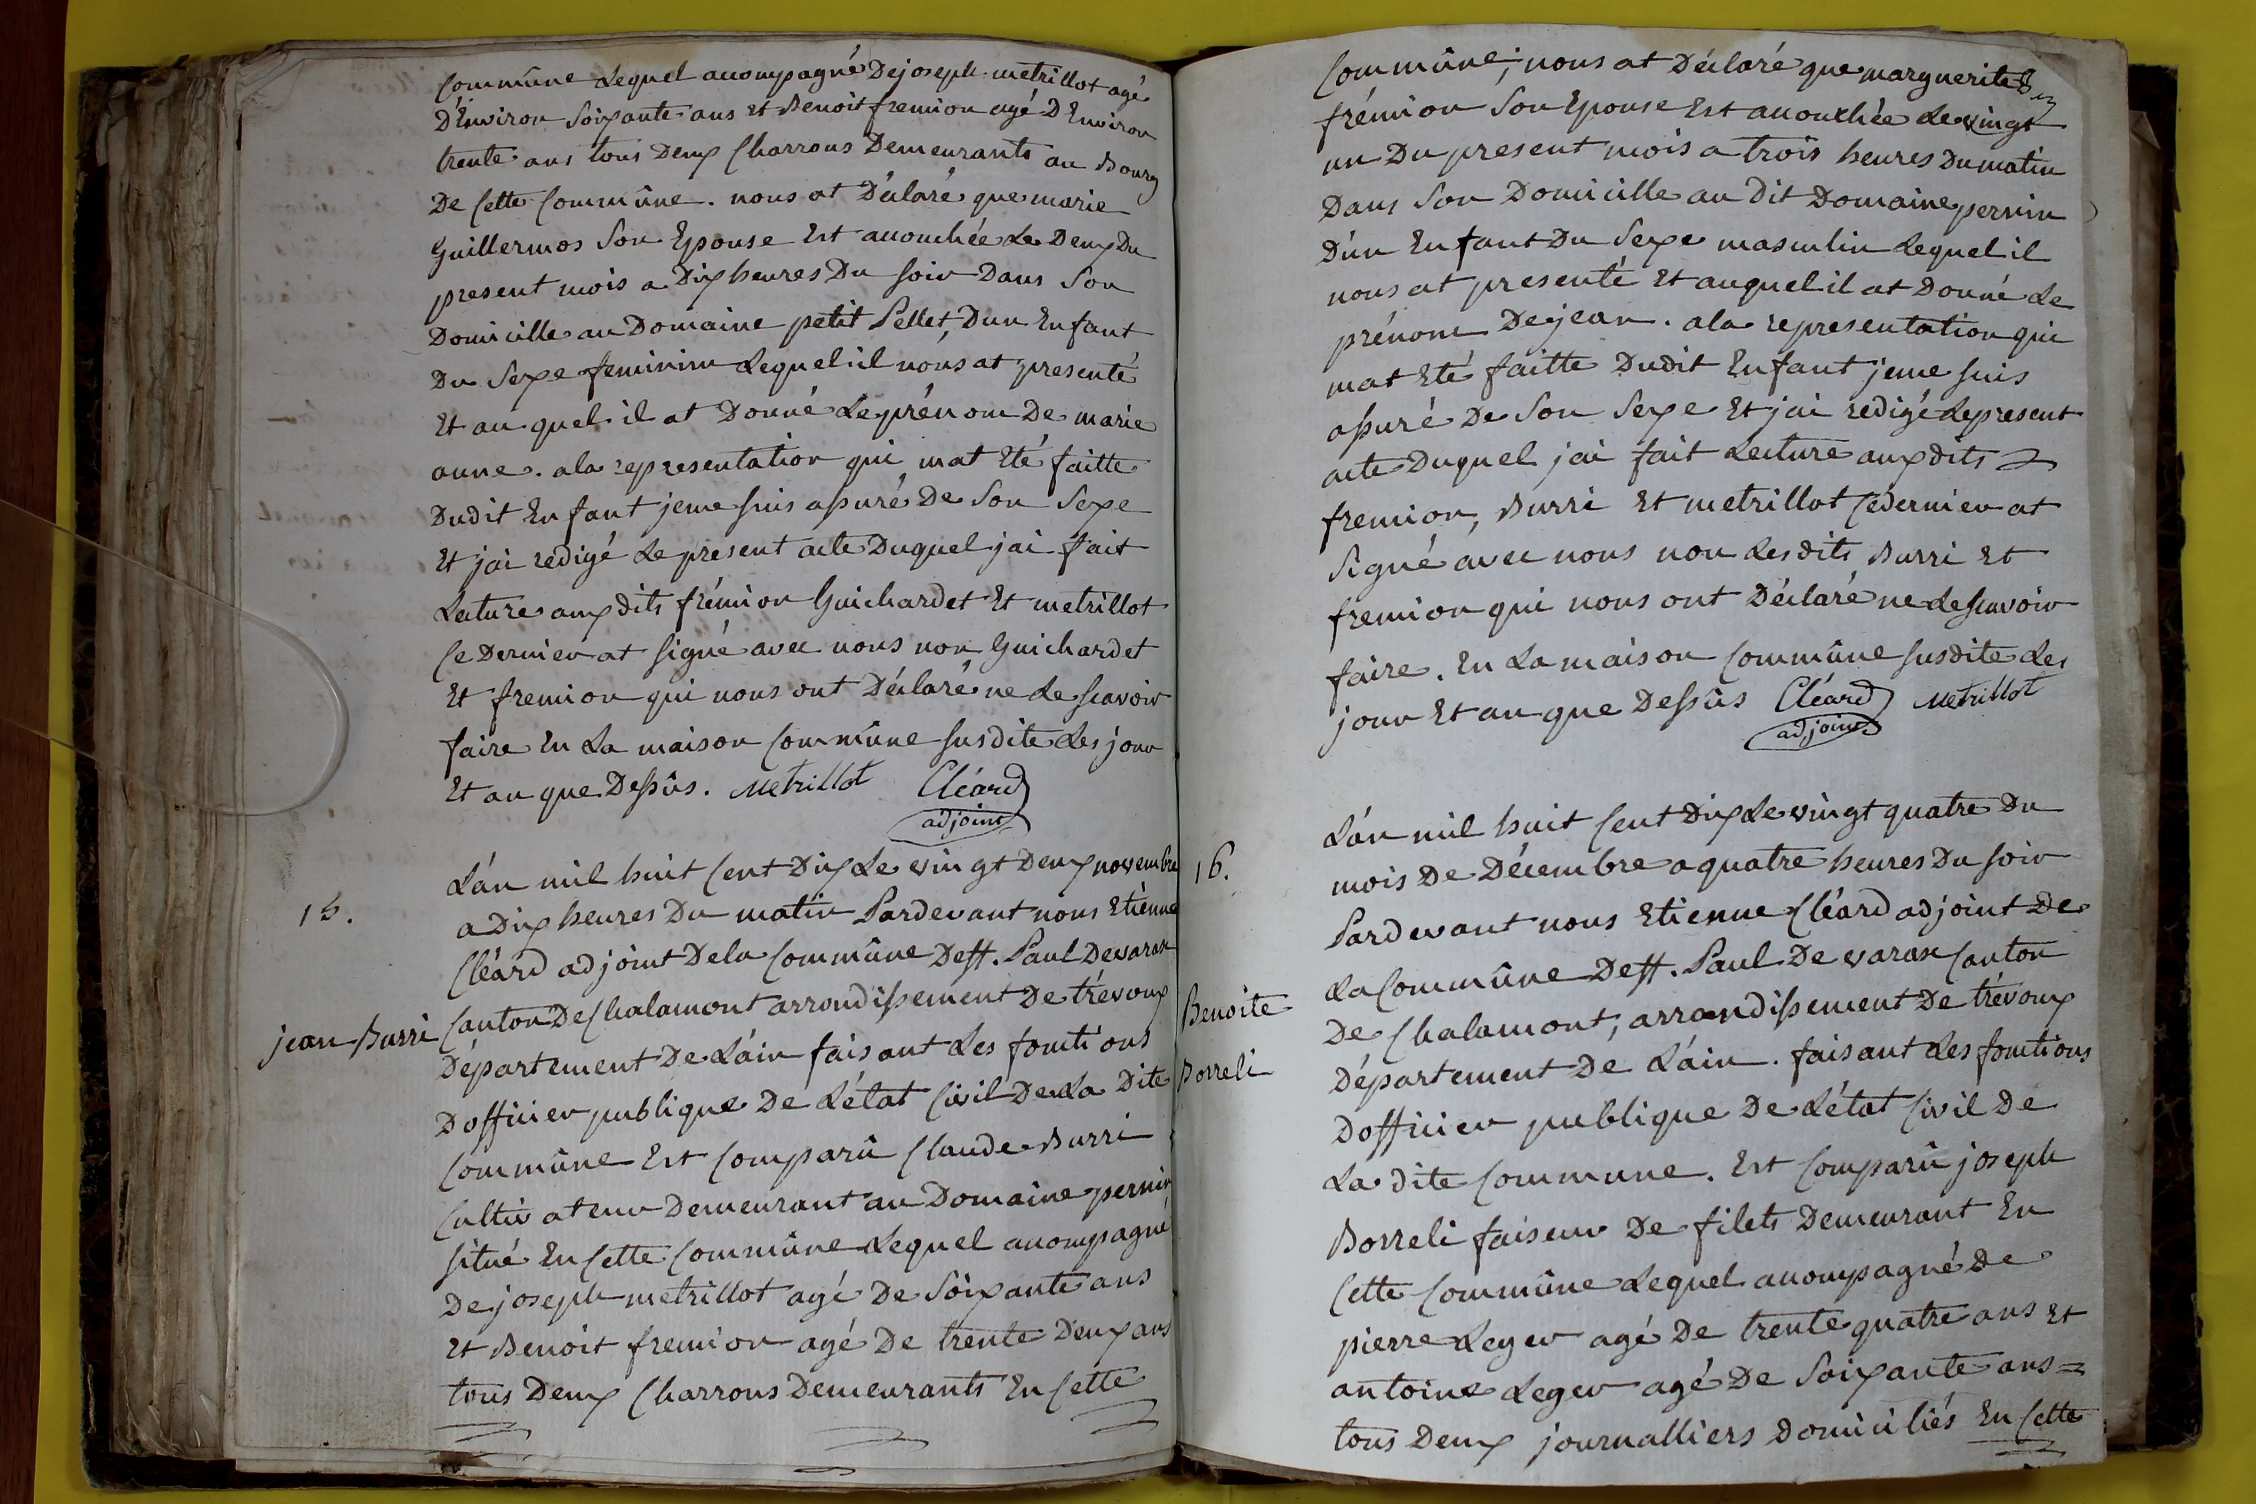 Commûne Lequel accompagné De joseph metrillot agé
D'Environ Soixante ans Et Benoit fremion agé D Environ
trente ans tous Deux Charrons Demeurants au Bourg
De Cette Commûne. nous at Déclaré que marie
Guillermos Son Epouse Est accouchée Le Deux Du
present mois a Dix heures Du soir Dans Son
Domicille au Domaine petit Pellet, D'un Enfant
Du Sexe feminin Lequel il nous at presenté
Et au quel il at Donné Le prénom De marie
anne. a la representation qui mat Eté faitte
Dudit Enfant je me suis assuré De Son Sexe
Et jai redigé Le present acte Duquel jai fait
Lecture aux dits frémion Guichardet Et metrillot
Ce Dernier at signé avec nous non Guichardet
Et fremion qui nous ont Déclaré ne Le scavoir
faire En La maison Commûne susdite Les jour
Et an que Dessûs. Metrillot Cléard
adjoint
15.
jean Burri
L'an mil huit Cent Dix Le vingt Deux novembre
a Dix heures Du matin Pardevant nous Etienne
Cléard adjoint De la Commûne De st. Paul De varax
Canton De Chalamont arrondissement De trévoux
Département De L'ain faisant Les fonctions
D officier publique De L'état Civil De La Dite
Commûne Est Comparû Claude Burri
Cultivateur Demeurant au Domaine pernin
situé En Cette Commûne Lequel accompagné
De joseph metrillot agé De Soixante ans
Et Benoit fremion agé De trente Deux ans
tous Deux Charrons Demeurants En Cette
Commûne; nous at Déclaré que marguerite
frémion Son Epouse Est accouchée Le vingt
un Du present mois a trois heures Du matin
Dans Son Domicille au Dit Domaine pernin
D'un Enfant Du Sexe masculin Lequel il
nous at presenté Et auquel il at Donné Le
prénom De jean. a la representation qui
mat Eté faitte Dudit Enfant je me suis
assuré De Son Sexe Et jai redigé Le present
acte Duquel jai fait Lecture aux dits
fremion, Burri Et metrillot Ce dernier at
Signé avec nous non Les dits Burri Et
fremion qui nous ont Déclaré ne Le scavoir
faire. En La maison Commûne susdite Les
jour Et an que Dessûs Cléard Metrillot
adjoint
16.
Benoite
Borreli
L'an mil huit Cent Dix Le vingt quatre Du
mois De Décembre a quatre heures Du soir
Pardevant nous Etienne Cléard adjoint De
La Commûne De st. Paul De varax Canton
De Chalamont, arrondissement De trévoux
Département De L'ain. faisant Les fonctions
D officier publique De L'état Civil De
La dite Commune. Est Comparû joseph
Borreli faiseur De filets Demeurant En
Cette Commûne Lequel accompagné De
pierre Leger agé De trente quatre ans Et
antoine Leger agé De Soixante ans =
tous Deux journalliers Domiciliés En Cette